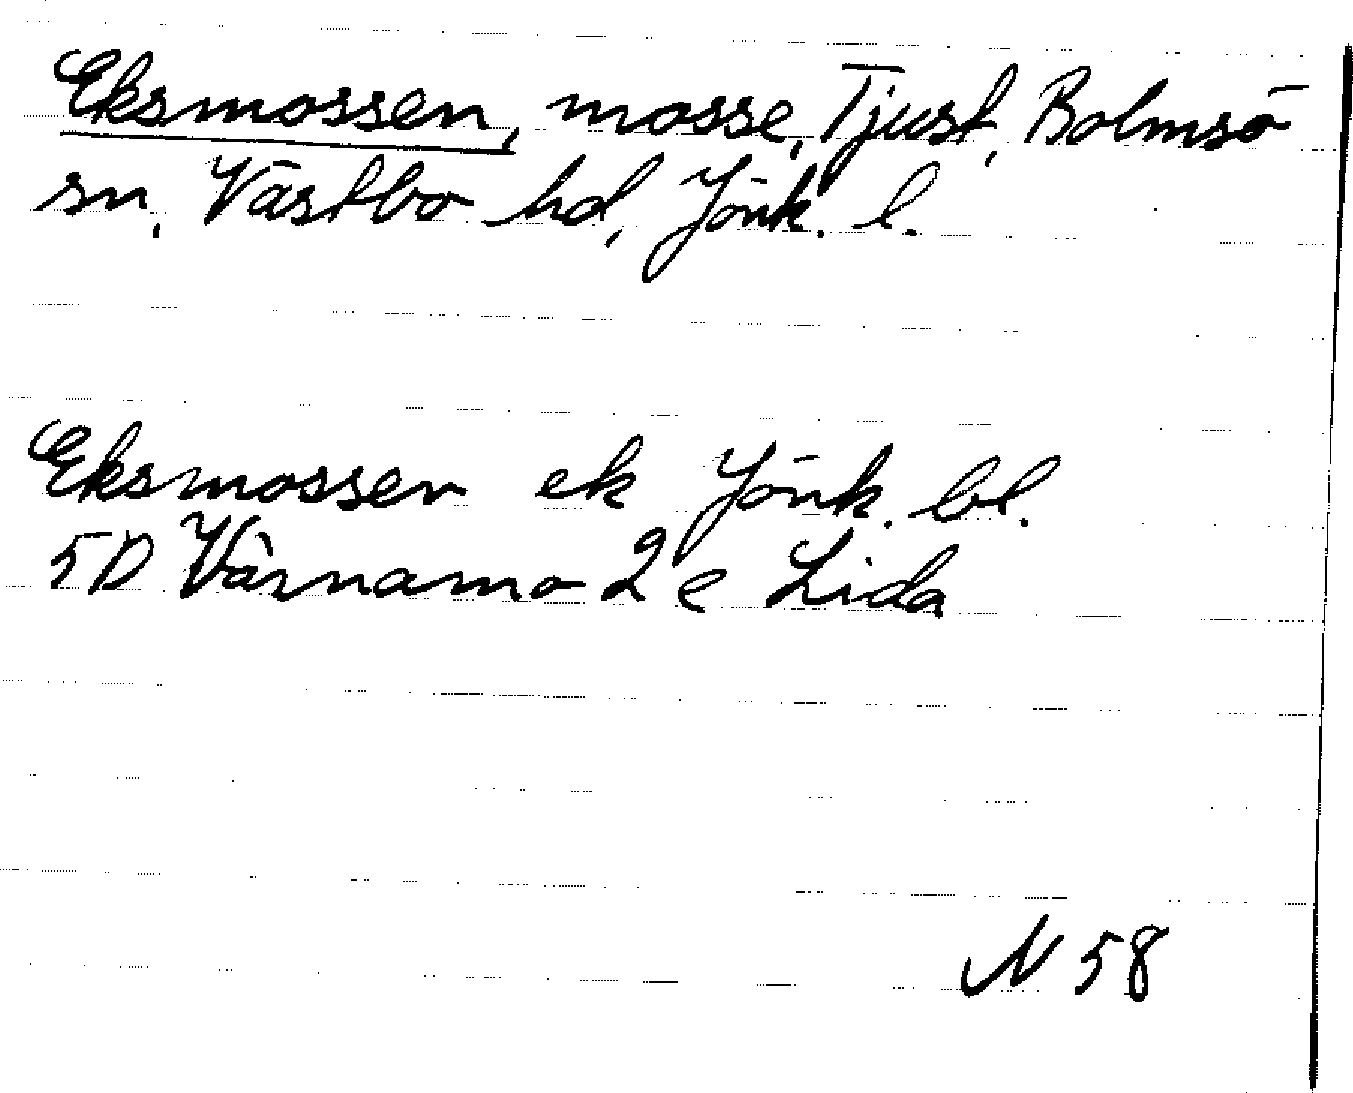 Eksmossen, mosse, Tjust, Bolmsö
sn, Västbo hd, Jönk. l.
Eksmossen ek Jönk. bl.
5D Värnamo 2 e Lida
N 58